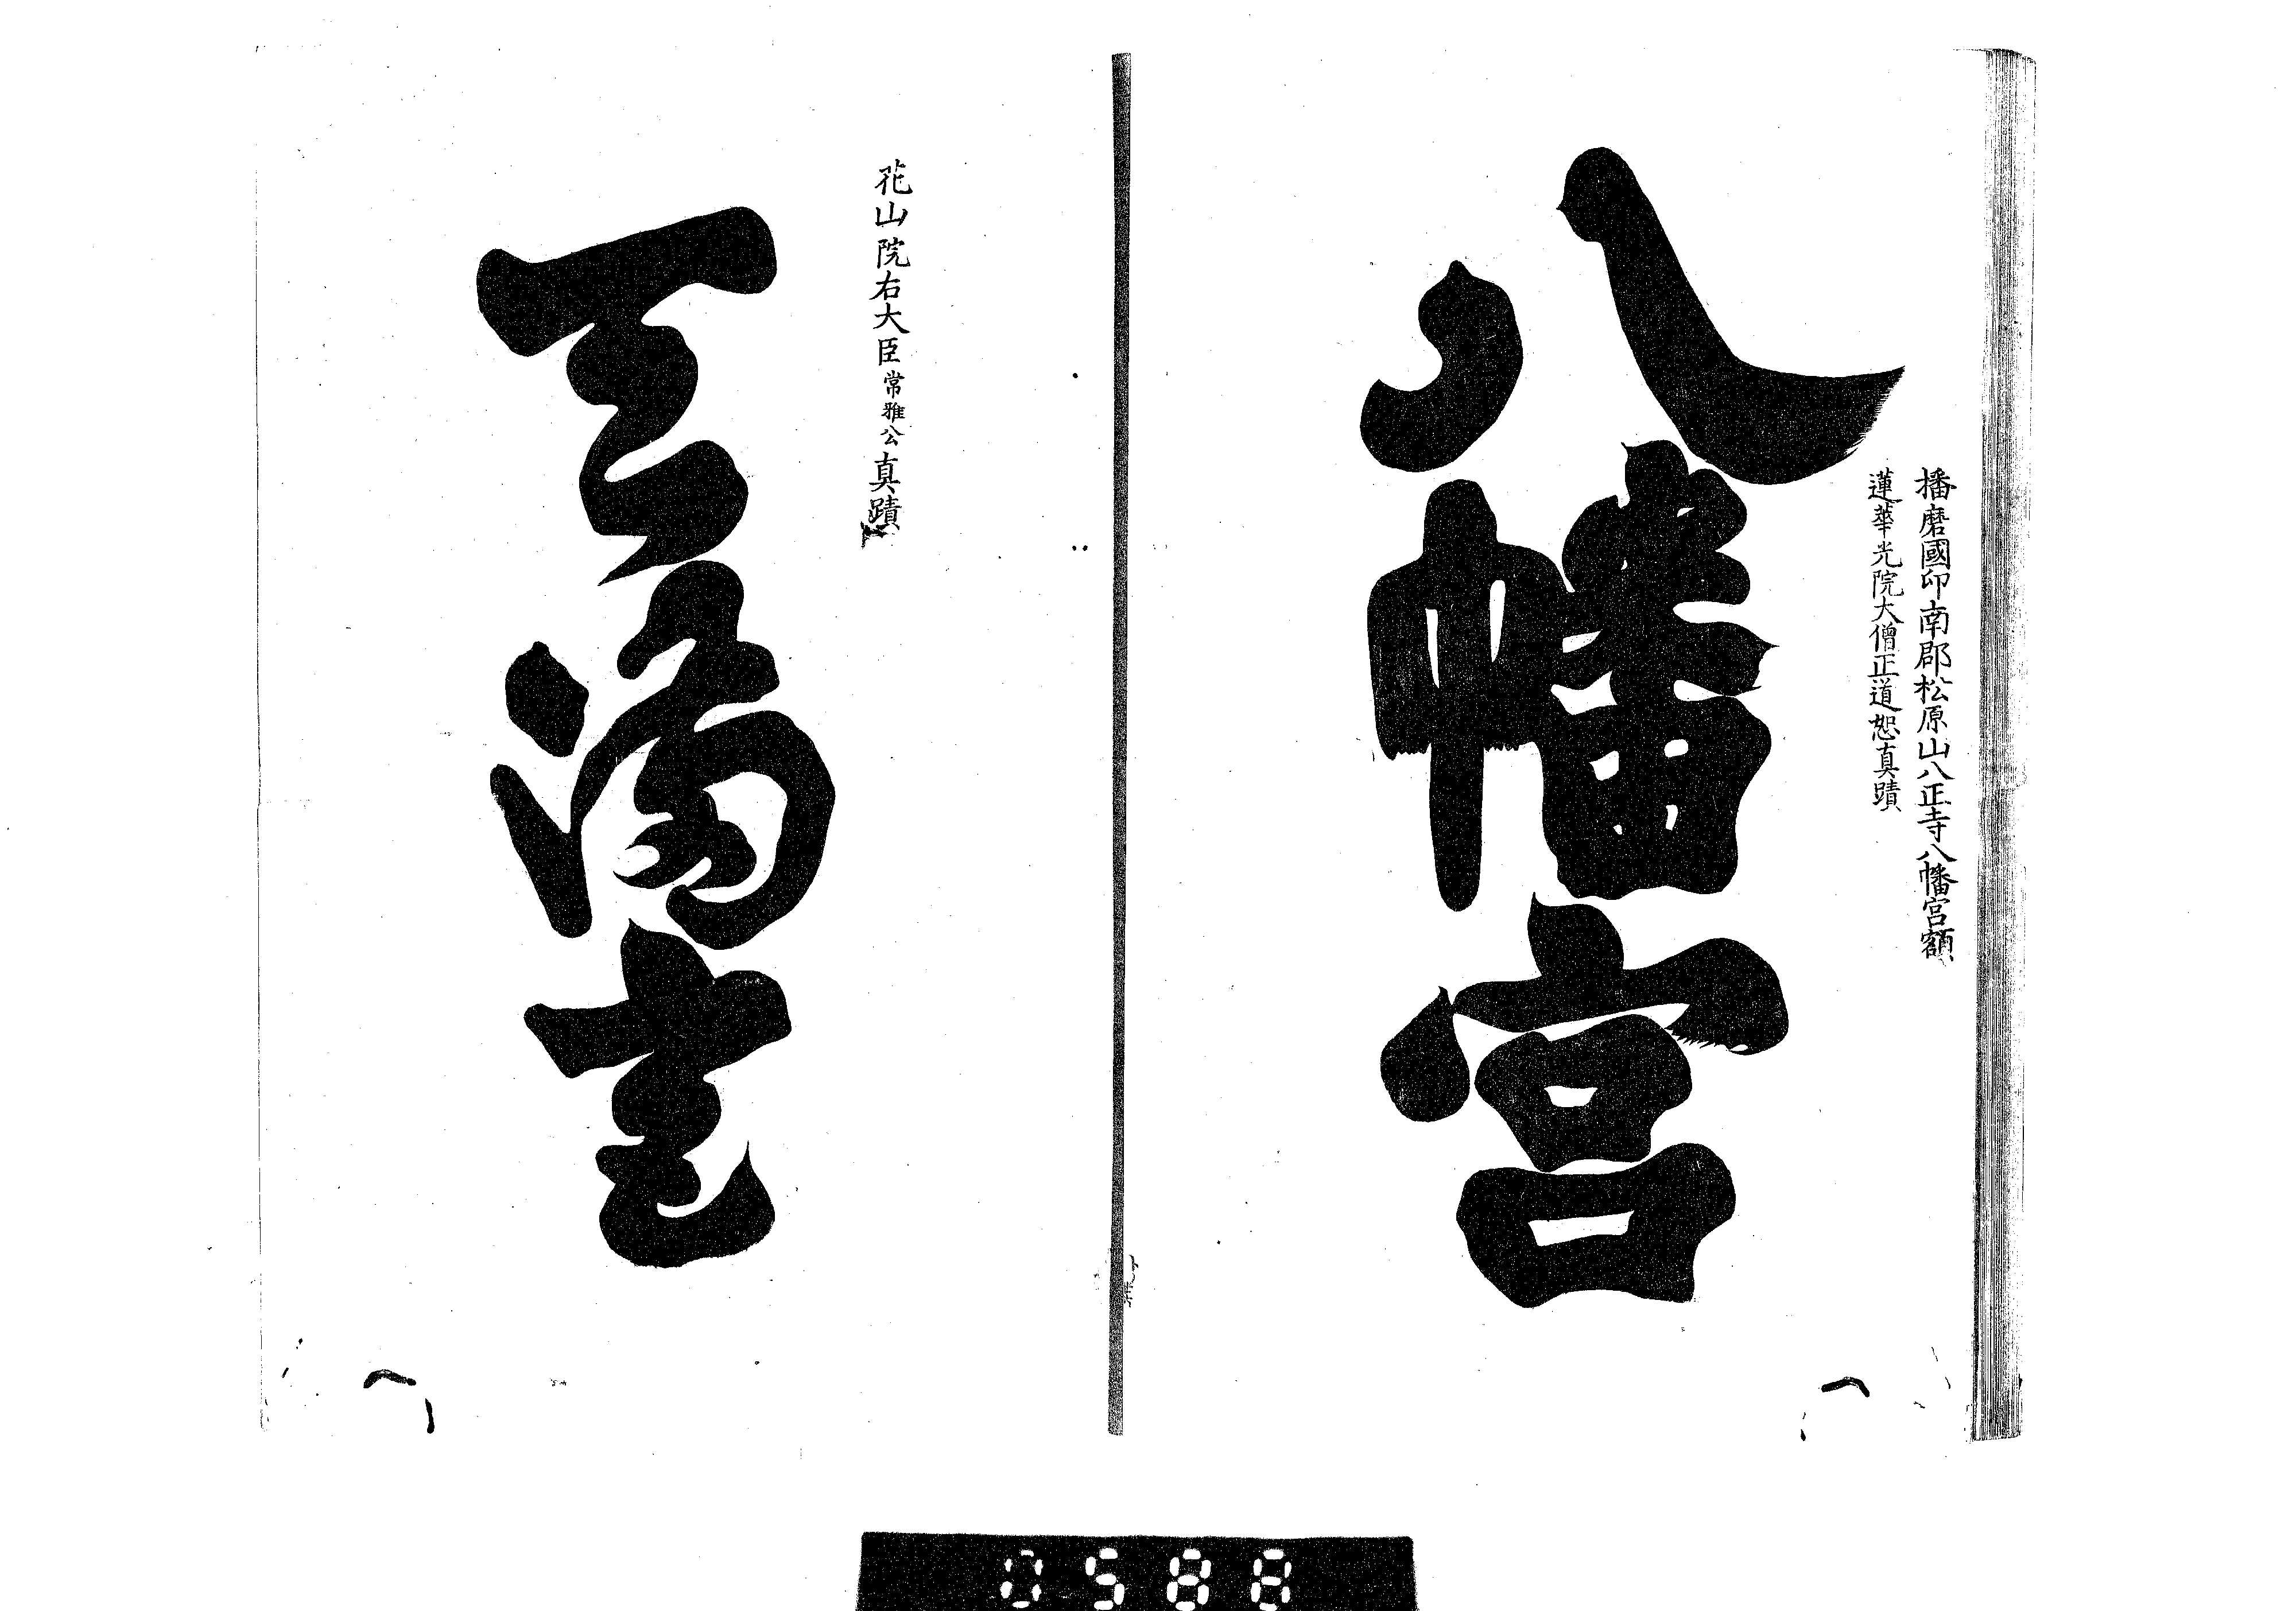 播磨國印南郡松原山八正寺八幡宮額
蓮華光院大僧正道恕真蹟
八幡宮
花山院右大臣常雅公真蹟
天満宮
0588